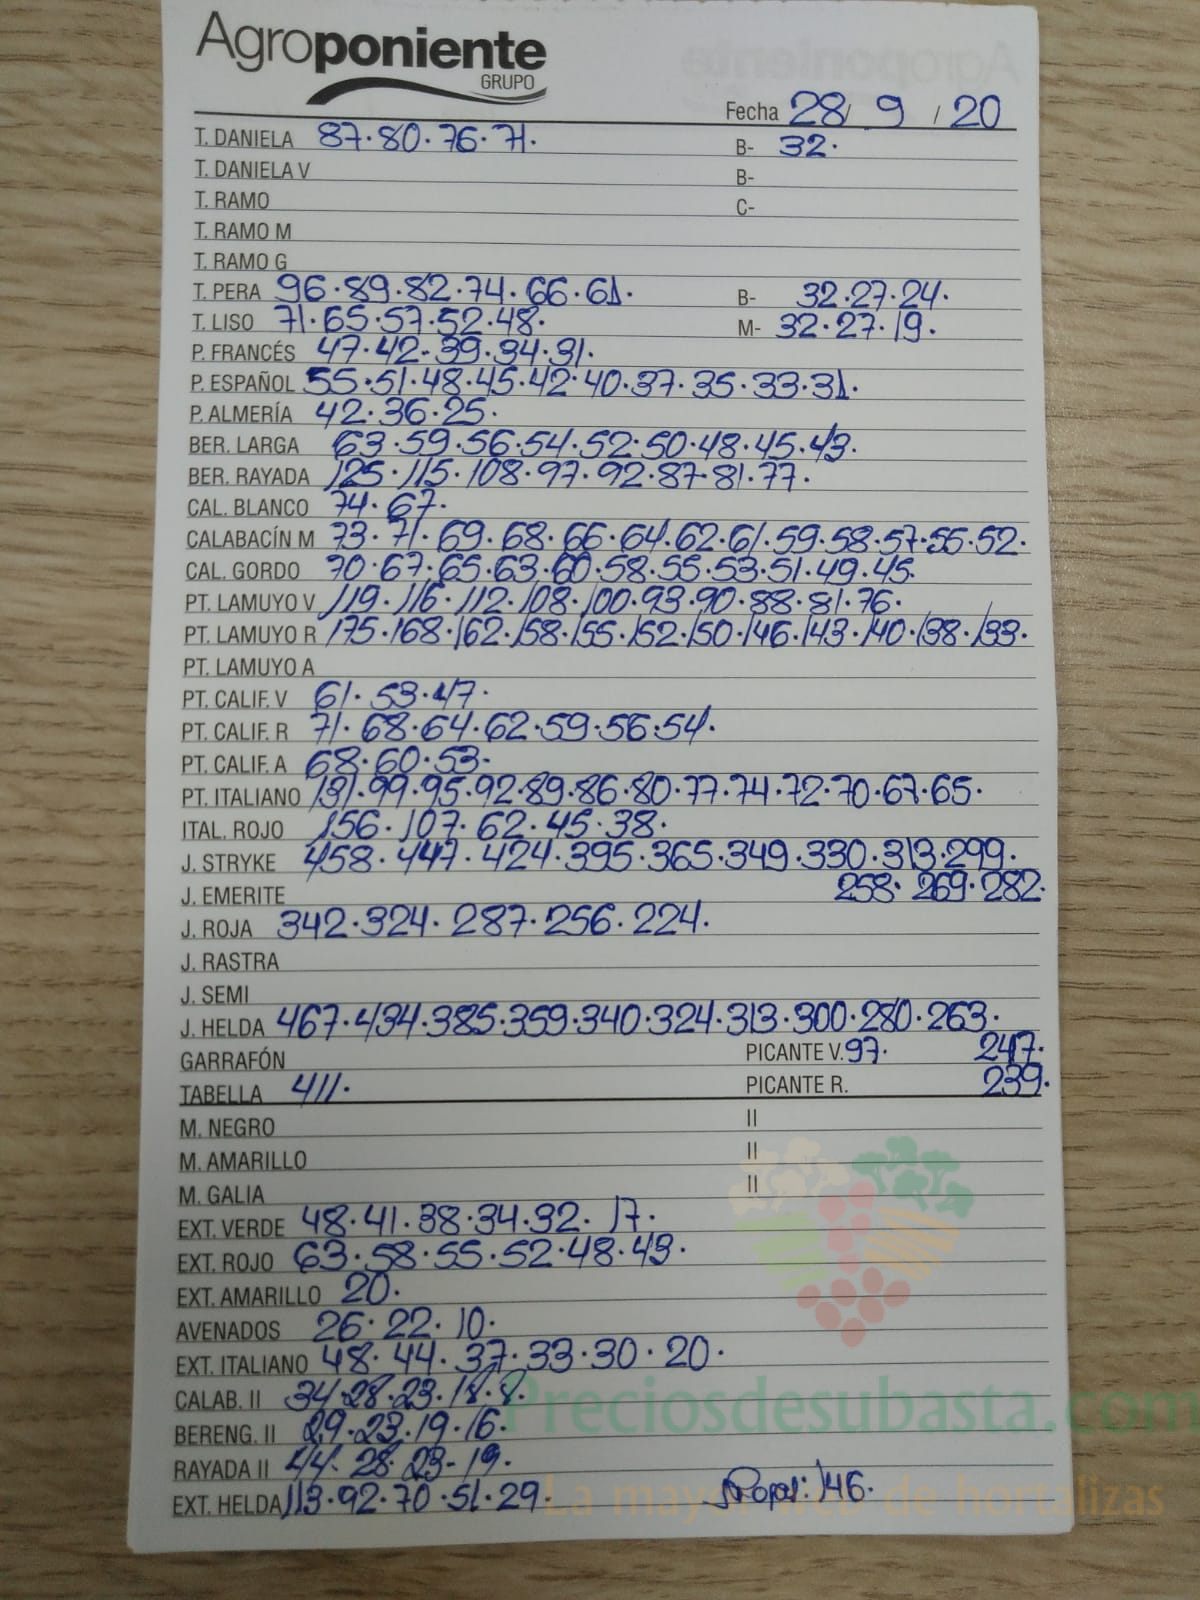 Agroponiente
GRUPO
Fecha 28/ 9 / 20
T. DANIELA 87·80·76·71· B- 32·
T. DANIELA V B-
T. RAMO C-
T. RAMO M
T. RAMO G
T. PERA 96·89·82·74·66·61· B- 32·27·24·
T. LISO 71·65·57·52·48· M- 32·27·19·
P. FRANCÉS 47·42·39·34·31·
P. ESPAÑOL 55·51·48·45·42·40·37·35·33·31·
P. ALMERÍA 42·36·25·
BER. LARGA 63·59·56·54·52·50·48·45·43·
BER. RAYADA 125·115·108·97·92·87·81·77·
CAL. BLANCO 74·67·
CALABACÍN M 73·71·69·68·66·64·62·61·59·58·57·55·52·
CAL. GORDO 70·67·65·63·60·58·55·53·51·49·45·
PT. LAMUYO V 119·116·112·108·100·93·90·88·81·76·
PT. LAMUYO R 175·168·162·158·155·152·150·146·143·140·138·133·
PT. LAMUYO A
PT. CALIF. V 61·53·47·
PT. CALIF. R 71·68·64·62·59·56·54·
PT. CALIF. A 68·60·53·
PT. ITALIANO 131·99·95·92·89·86·80·77·74·72·70·67·65·
ITAL. ROJO 156·107·62·45·38·
J. STRYKE 458·447·424·395·365·349·330·313·299·
J. EMERITE 258·269·282·
J. ROJA 342·324·287·256·224·
J. RASTRA
J. SEMI
J. HELDA 467·434·385·359·340·324·313·300·280·263·
GARRAFÓN PICANTE V. 97· 247·
TABELLA 411· PICANTE R. 239·
M. NEGRO II
M. AMARILLO II
M. GALIA II
EXT. VERDE 48·41·38·34·32·17·
EXT. ROJO 63·58·55·52·48·43·
EXT. AMARILLO 20·
AVENADOS 26·22·10·
EXT. ITALIANO 48·44·37·33·30·20·
CALAB. II 34·28·23·18·8·
Preciosdesubasta.com
BERENG. II 29·23·19·16·
RAYADA II 44·28·23·19·
EXT. HELDA 113·92·70·51·29· 146·
La mayor web de hortalizas